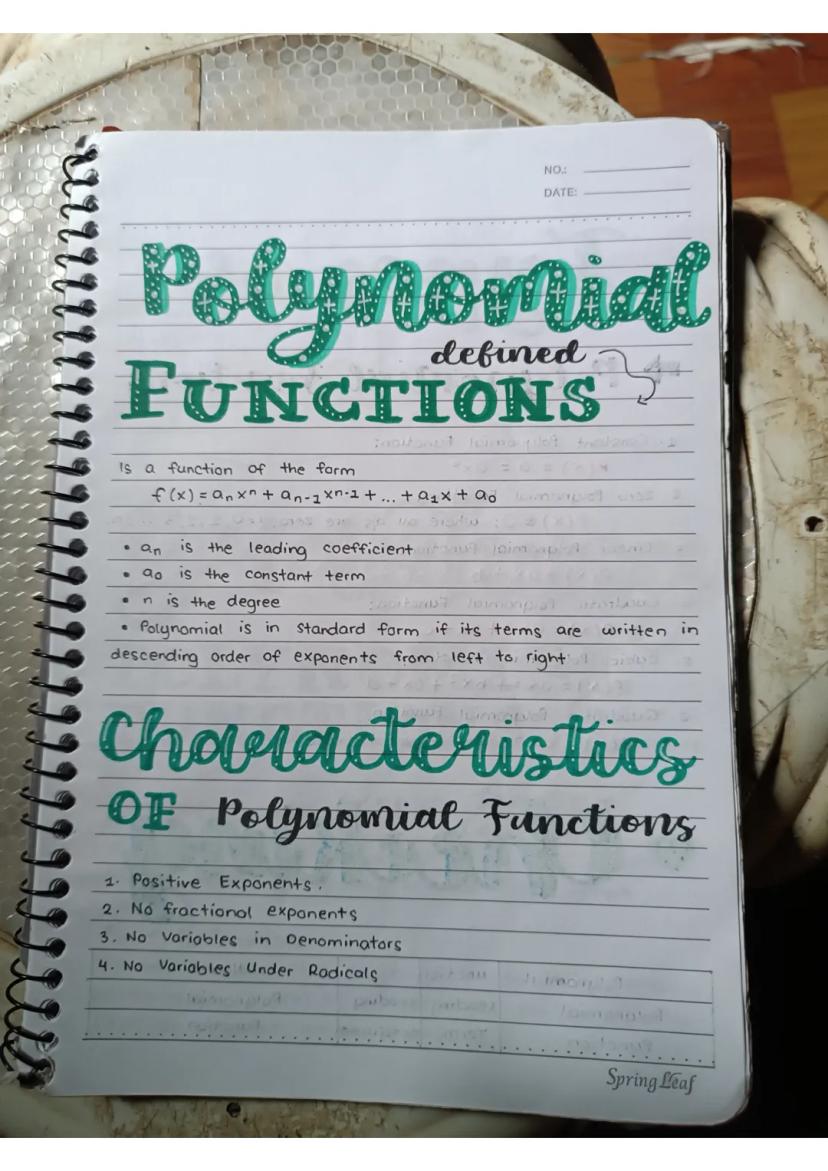 NO.:
DATE:
Polynomial
defined
FUNCTIONS
Is a function of the form
f(x) = aₙxⁿ + aₙ₋₁xⁿ⁻¹ + ... + a₁x + a₀
• aₙ is the leading coefficient
• a₀ is the constant term
• n is the degree
• Polynomial is in standard form if its terms are written in
descending order of exponents from left to right
Characteristics
OF Polynomial Functions
1. Positive Exponents.
2. No fractional exponents
3. No Variables in Denominators
4. No Variables Under Radicals
Spring Leaf